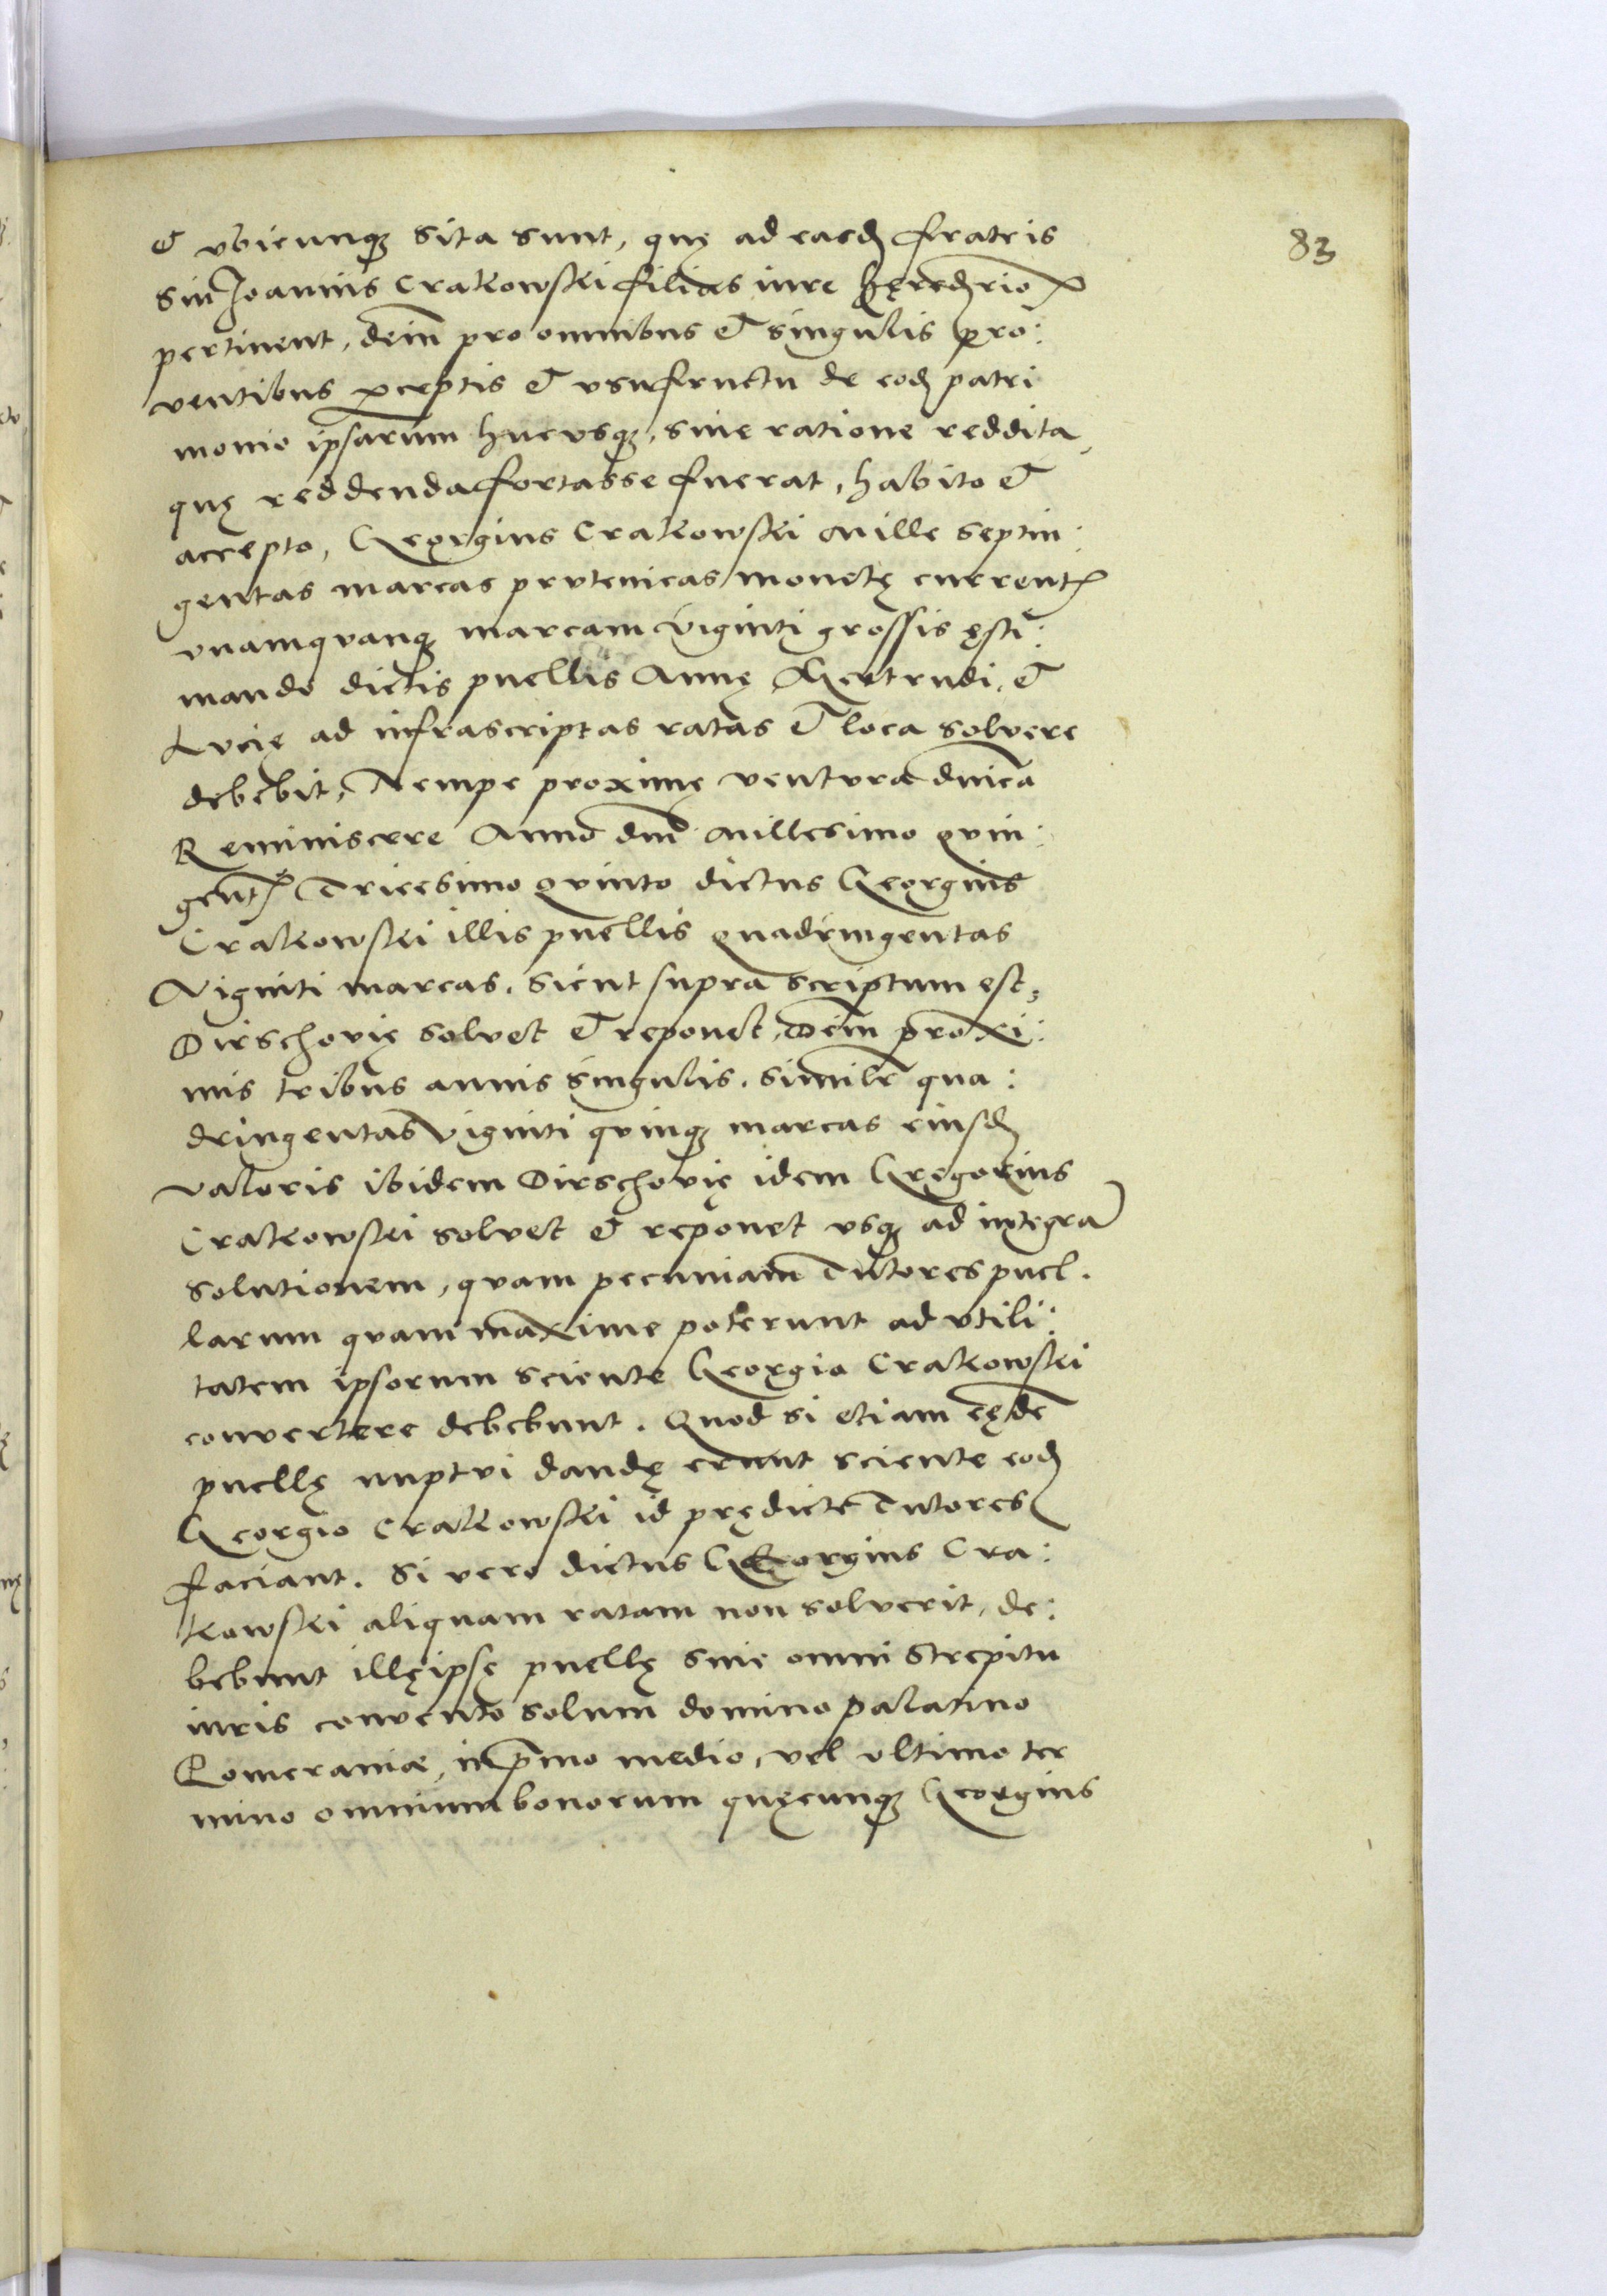 83
et vbicunq; sita sunt, quę ad easd fratris
sui Joannis Crakowski filias iure hęredrio
pertinent, dein pro omnibus et singulis pro:
uentibus pceptis et vsufructu de eod patri
monio ipsarum hucvsq;, sine ratione reddita,
quę reddenda fortasse fuerat, habito et
accepto, Georgius Crakowski Mille septin:
gentas marcas prutenicas monetę current
vnamquanq; marcam viginti grossis ęsti:
mando dictis puellis Annę Gertrudi, et
Lucię ad infrascriptas ratas et loca soluere
debebit, Nempe proximę ventura dnica
Reminiscere Anno dni Millesimo quin:
gent Tricesimo quinto dictus Georgius
Crakowski illis puellis quadringentas
Viginti marcas, sicut supra scriptum est,
Dirschovię soluet et reponet, Dein proxi:
mis tribus annis singulis, similr qua:
dringentas viginti quinq; marcas eiusd
valoris ibidem Dirschovię idem Gregorius
Crakowski soluet et reponet vsq; ad integra
solutionem, quam pecuniam Tutores puel.
larum quam maxime poterunt ad vtili:
tatem ipsorum sciente Georgio Crakowski
conuertere debebunt. Quod si etiam eędē
puellę nuptui dandę erunt sciente eod
Georgio Crakowski id prędicte Tutores
faciant. Si vero dictus Georgius Cra:
kowski aliquam ratam non soluerit, de:
bebunt illę ipsę puellę sine omni strepitu
iuris conuento solum domino palatino
Pomeraniæ, in pmo medio, vel vltimo ter
mino omnium bonorum quęcunq; Georgius